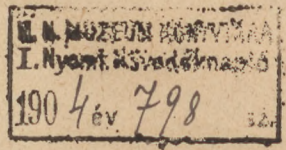 M. N. MUZEUM KÖNYVTÁRA
I. Nyomt. Növedéknapló
1904 év 798 sz.